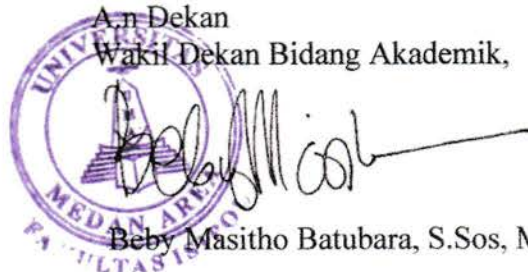 A.n Dekan
Wakil Dekan Bidang Akademik,
UNIVERSITAS
MEDAN AREA
Beby Masitho Batubara, S.Sos, M